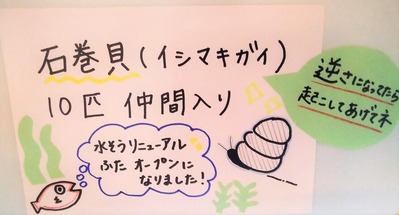 石巻貝(イシマキガイ)
10匹 仲間入り
逆さになってたら
起こしてあげてネ
水そうリニューアル
ふた オープンに
なりました!